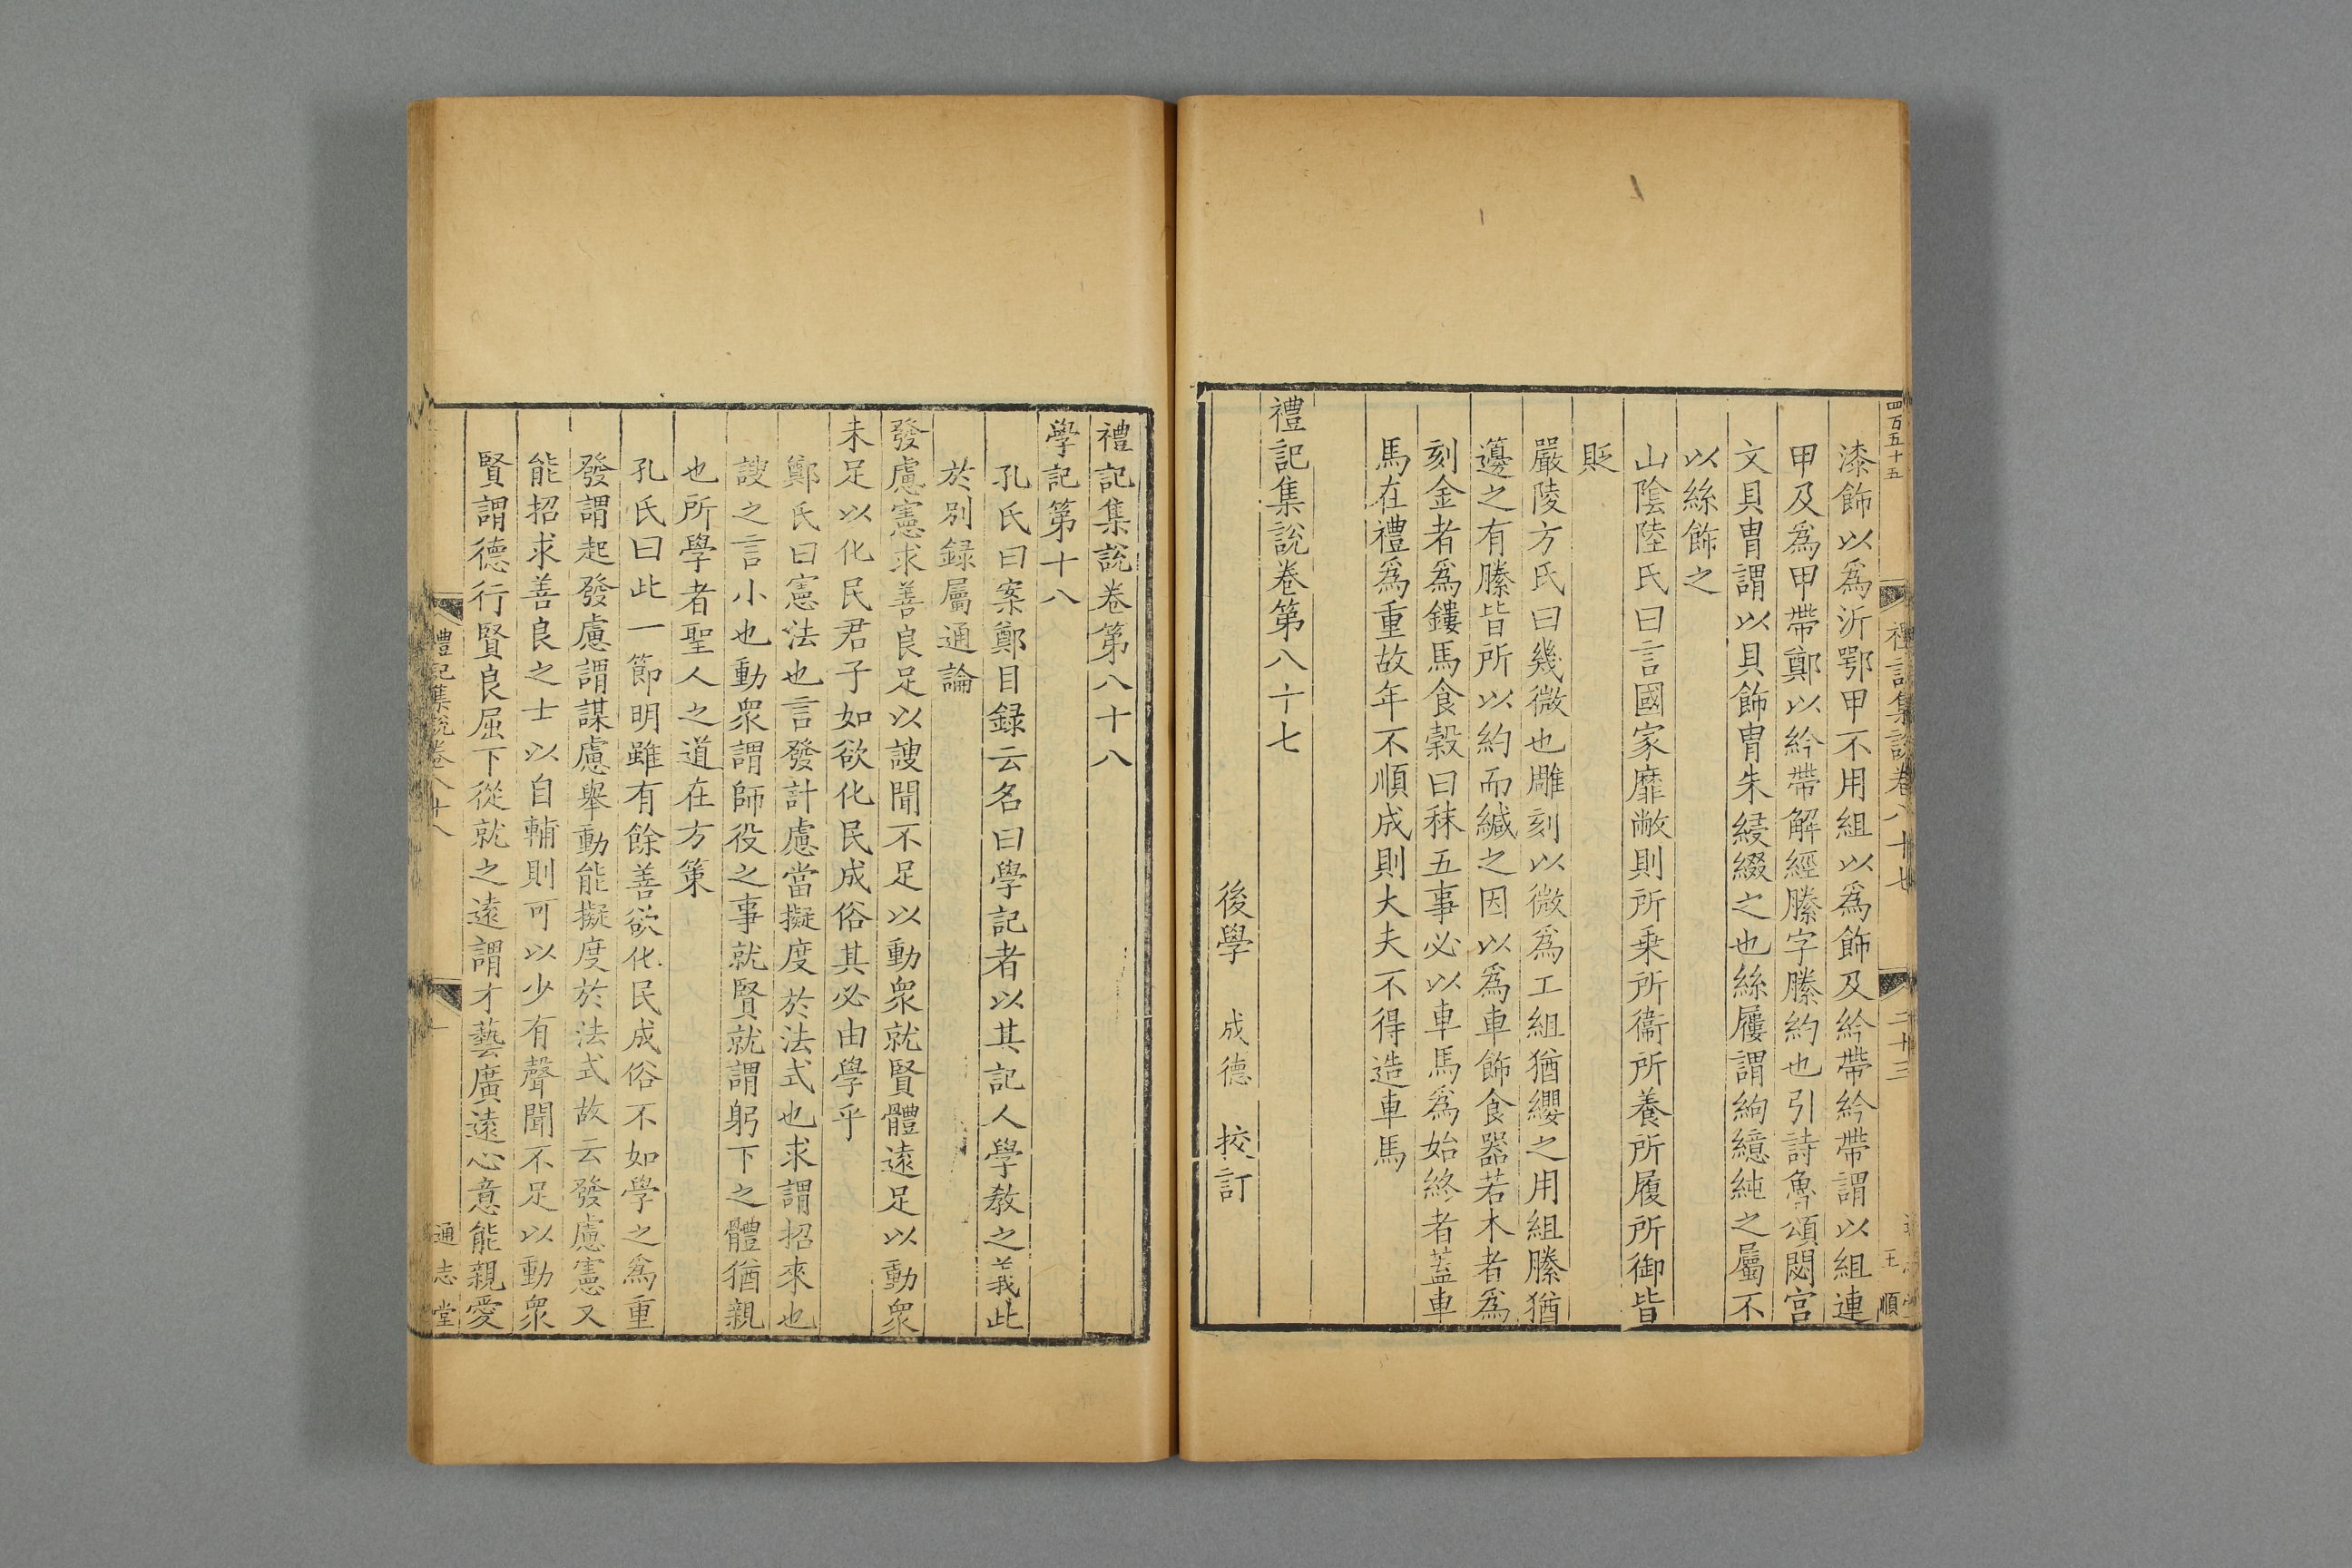 四百五十五
禮記集說卷八十七
二十三
王順
漆飾以爲沂鄂甲不用組以爲飾及紟帶紟帶謂以組連
甲及爲甲帶鄭以紟帶解經縢字縢約也引詩魯頌閟宮
文貝冑謂以貝飾冑朱綅綴之也絲屨謂絇繶純之屬不
以絲飾之
山陰陸氏曰言國家靡敝則所乗所衞所養所履所御皆
貶
嚴陵方氏曰幾微也雕刻以微爲工組猶纓之用組縢猶
籩之有縢皆所以約而緘之因以爲車飾食器若木者爲
刻金者爲鏤馬食穀曰秣五事必以車馬爲始終者蓋車
馬在禮爲重故年不順成則大夫不得造車馬
禮記集說卷第八十七
後學 成德 挍訂
禮記集說卷第八十八
學記第十八
孔氏曰案鄭目録云名曰學記者以其記人學教之義此
於別録屬通論
發慮憲求善良足以謏聞不足以動衆就賢體遠足以動衆
未足以化民君子如欲化民成俗其必由學乎
鄭氏曰憲法也言發計慮當擬度於法式也求謂招來也
謏之言小也動衆謂師役之事就賢就謂躬下之體猶親
也所學者聖人之道在方策
孔氏曰此一節明雖有餘善欲化民成俗不如學之爲重
發謂起發慮謂謀慮舉動能擬度於法式故云發慮憲又
能招求善良之士以自輔則可以少有聲聞不足以動衆
賢謂德行賢良屈下從就之遠謂才藝廣遠心意能親愛
禮記集說卷八十八
一
通志堂